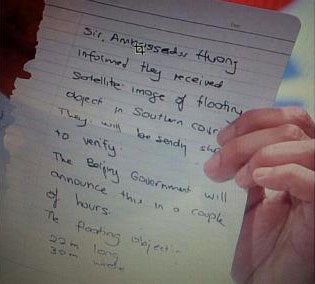 Sir, Ambassador Huang
informed they received
satellite image of floating
object in Southern
They will be sending
to verify.
The Beijing Government will
announce this in a couple
of hours.
The floating object
22m long
30m wide